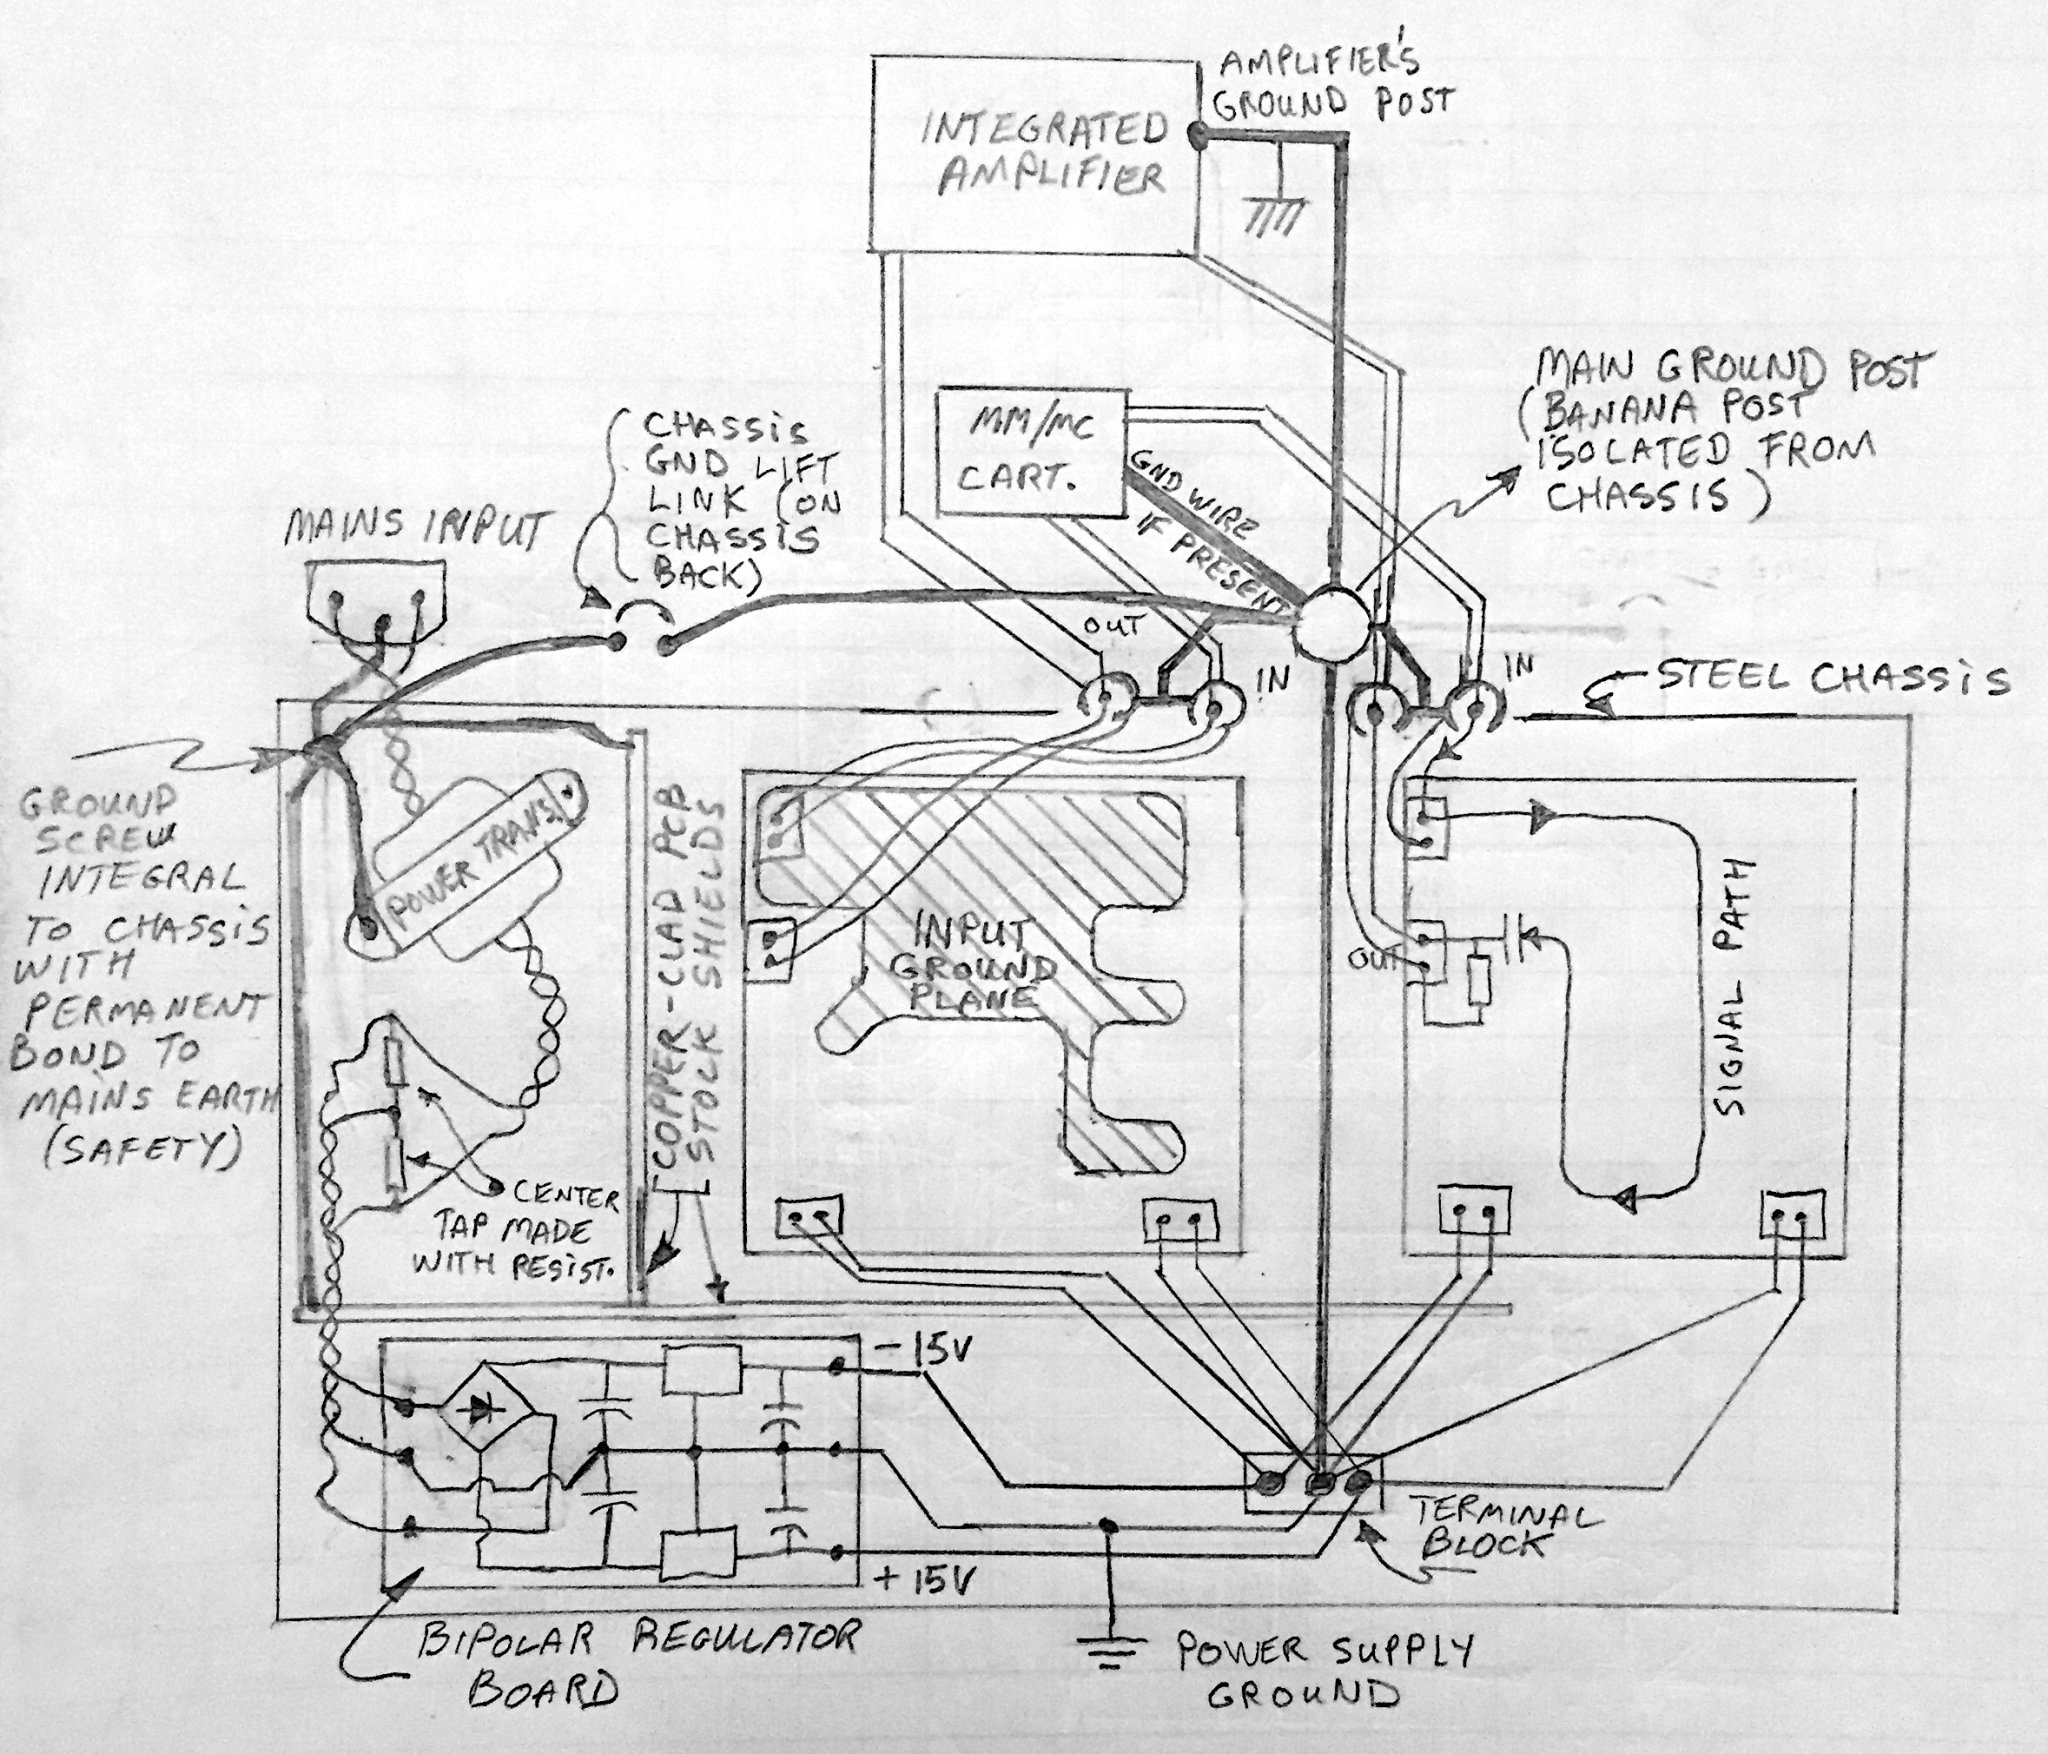 AMPLIFIER'S
GROUND POST
INTEGRATED
AMPLIFIER
MAIN GROUND POST
(BANANA POST
ISOLATED FROM
CHASSIS)
MM/MC
CART.
GND WIRE
IF PRESENT
CHASSIS
GND LIFT
LINK (ON
CHASSIS
BACK)
MAINS INPUT
OUT
IN
IN
STEEL CHASSIS
GROUND
SCREW
INTEGRAL
TO CHASSIS
WITH
PERMANENT
BOND TO
MAINS EARTH
(SAFETY)
POWER TRANS.
COPPER-CLAD PCB
STOCK SHIELDS
INPUT
GROUND
PLANE
OUT
SIGNAL PATH
CENTER
TAP MADE
WITH RESIST.
-15V
+15V
TERMINAL
BLOCK
BIPOLAR REGULATOR
BOARD
POWER SUPPLY
GROUND